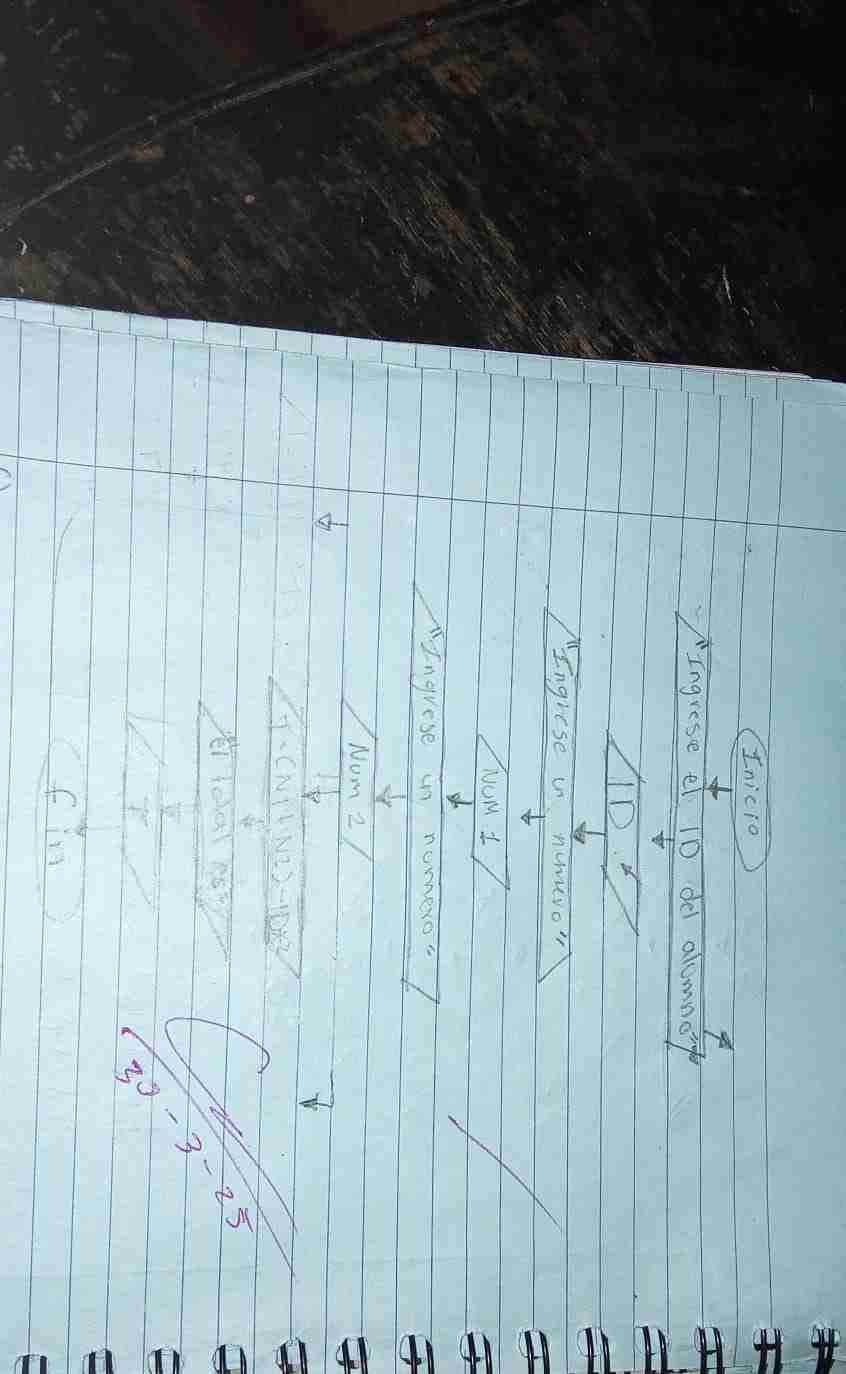 Inicio
"Ingrese el ID del alumno"
ID
"Ingrese un numero"
Num 1
"Ingrese un numero"
Num 2
T=(N1+N2)-ID*2
El total es
T
fin